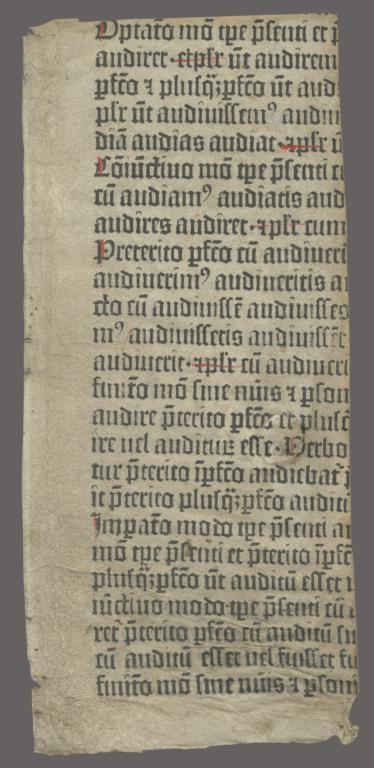 Optato mō tp̄e p̄senti et p̄
audiret · et pl̄r ūt audirem
p̄fc̄o ⁊ plusq̄ꝫp̄fc̄o ūt aud
pl̄r ūt audiuissemꝰ audiui
diā audias audiat · ⁊ pl̄r ū
Cōiūctiuo mō tp̄e p̄senti c
cū audiamꝰ audiatis aud
audires audiret · ⁊ pl̄r cum
Preterito p̄fc̄o cū audiueri
audiuerimꝰ audiueritis a
cto cū audiuissē audiuisses
mꝰ audiuissetis audiuissēt
audiuerit · ⁊ pl̄r cū audiueri
finito mō sine nūis ⁊ ꝑson
audire p̄terito p̄fc̄o et plusq̄
ire uel auditurꝫ esse · Verbo
tur p̄terito īp̄fc̄o audiebat̄
īt p̄terito plusq̄ꝫp̄fc̄o auditū
Imꝑato modo tp̄e p̄senti au
mō tp̄e p̄senti et p̄terito īp̄fc̄
plusq̄ꝫp̄fc̄o ūt auditū esset
iūctiuo modo tp̄e p̄senti cū
ret̄ p̄terito p̄fc̄o cū auditū
cū auditū esset uel fuisset fu
finito mō sine nūis ⁊ ꝑson